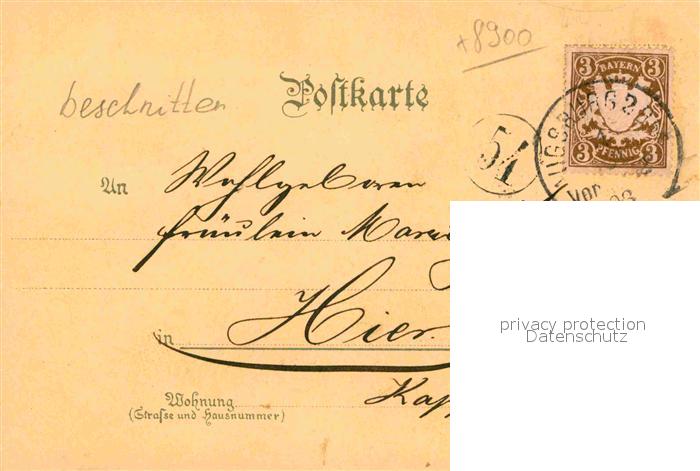 +8900
beschnitten
Postkarte
3 BAYERN 3
3 PFENNIG 3
AUGSBURG 2
Vor
54
An Wohlgeboren
Fräulein Marie
in Hier.
Wohnung
(Strasse und Hausnummer)
privacy protection
Datenschutz